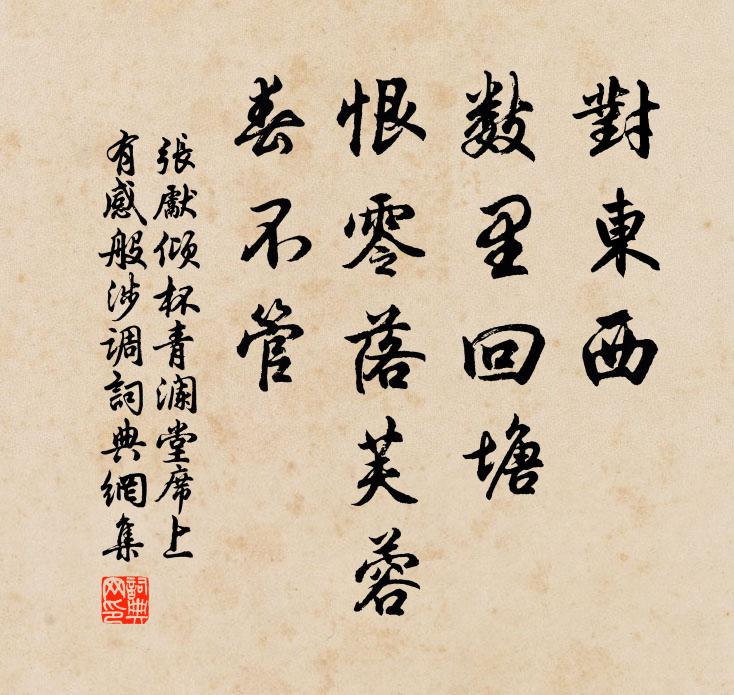 對東西
數里回塘
恨零落芙蓉
春不管
張獻傾杯青瀾堂席上
有感般涉调詞典網集
詞典網印